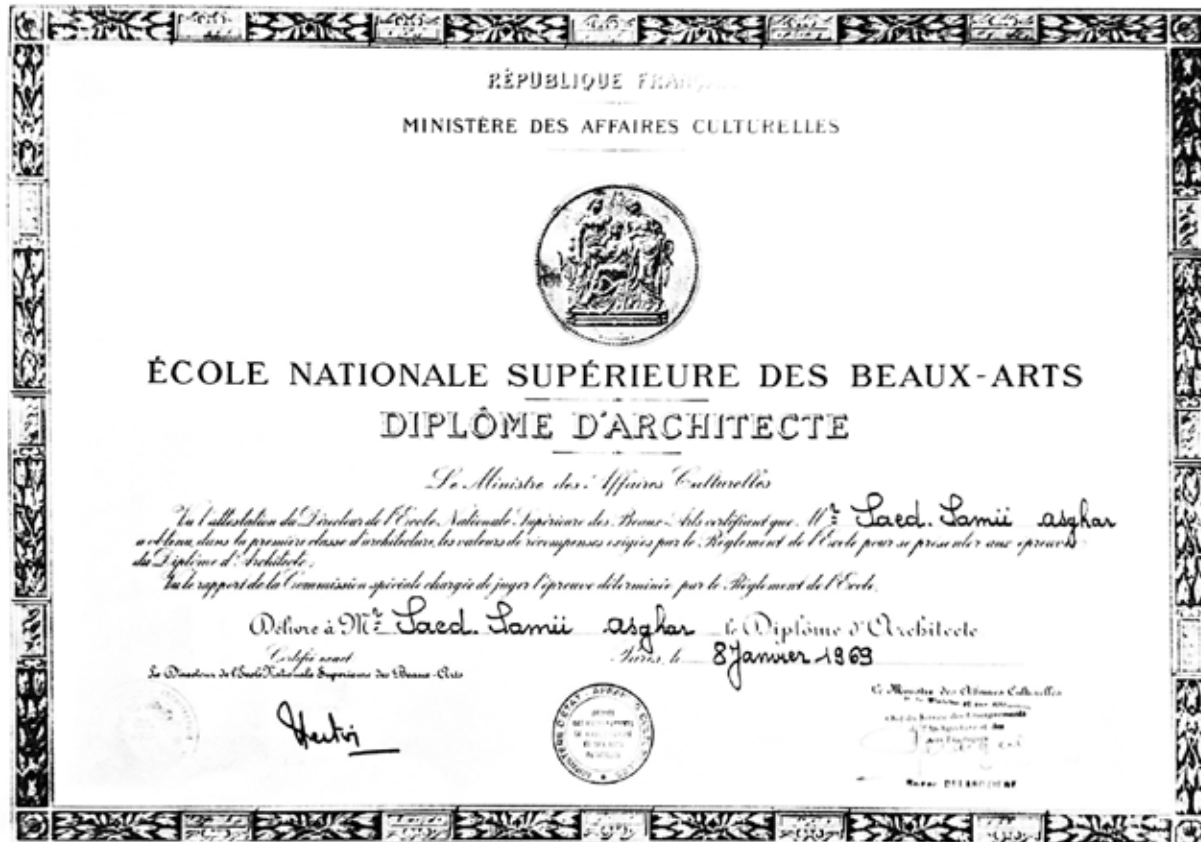 RÉPUBLIQUE FRANÇ
MINISTÈRE DES AFFAIRES CULTURELLES
ÉCOLE NATIONALE SUPÉRIEURE DES BEAUX-ARTS
DIPLÔME D'ARCHITECTE
Le Ministre des Affaires Culturelles
Vu l'attestation du Directeur de l'École Nationale Supérieure des Beaux-Arts certifiant que Mr Saed. Samii asghar
a obtenu, dans la première classe d'architecture, les valeurs de récompenses exigées par le Règlement de l'École pour se présenter aux épreuves
du Diplôme d'Architecte,
Vu le rapport de la Commission spéciale chargée de juger l'épreuve déterminée par le Règlement de l'École,
Délivre à Mr Saed. Samii asghar le Diplôme d'Architecte
Certifié exact Paris, le 8 Janvier 1969
Le Directeur de l'École Nationale Supérieure des Beaux-Arts
Le Ministre des Affaires Culturelles